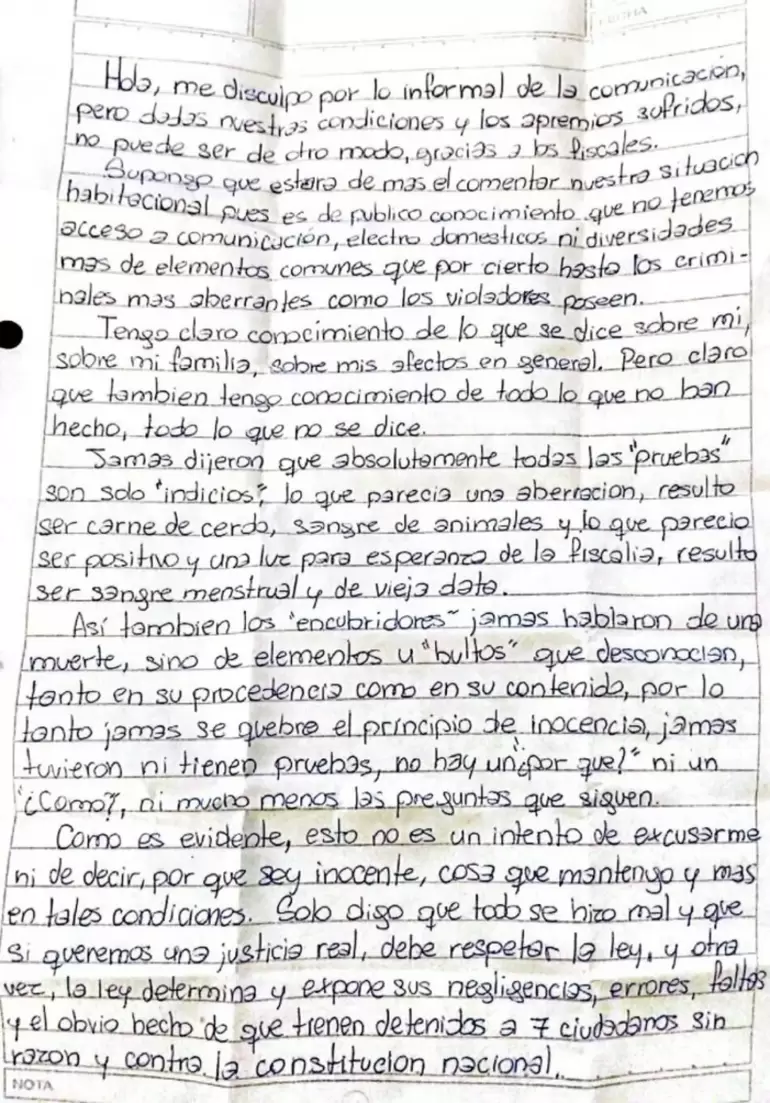 FECHA
Hola, me disculpo por lo informal de la comunicación,
pero dadas nuestras condiciones y los apremios sufridos,
no puede ser de otro modo, gracias a los fiscales.
Supongo que estara de mas el comentar nuestra situacion
habitacional pues es de publico conocimiento que no tenemos
acceso a comunicación, electro domesticos ni diversidades
mas de elementos comunes que por cierto hasta los crimi-
nales mas aberrantes como los violadores poseen.
Tengo claro conocimiento de lo que se dice sobre mi,
sobre mi familia, sobre mis afectos en general. Pero claro
que tambien tengo conocimiento de todo lo que no han
hecho, todo lo que no se dice.
Jamas dijeron que absolutamente todas las "pruebas"
son solo "indicios", lo que parecia una aberracion, resulto
ser carne de cerdo, sangre de animales y lo que parecio
ser positivo y una luz para esperanza de la fiscalia, resulto
ser sangre menstrual y de vieja data.
Así tambien los "encubridores" jamas hablaron de una
muerte, sino de elementos u "bultos" que desconocian,
tanto en su procedencia como en su contenido, por lo
tanto jamas se quebro el principio de inocencia, jamas
tuvieron ni tienen pruebas, no hay un "¿por que?" ni un
"¿Como?", ni mucho menos las preguntas que siguen.
Como es evidente, esto no es un intento de excusarme
ni de decir, por que soy inocente, cosa que mantengo y mas
en tales condiciones. Solo digo que todo se hizo mal y que
si queremos una justicia real, debe respetar la ley, y otra
vez, la ley determina y expone sus negligencias, errores, faltas
y el obvio hecho de que tienen detenidos a 7 ciudadanos sin
razon y contra la constitucion nacional.
NOTA